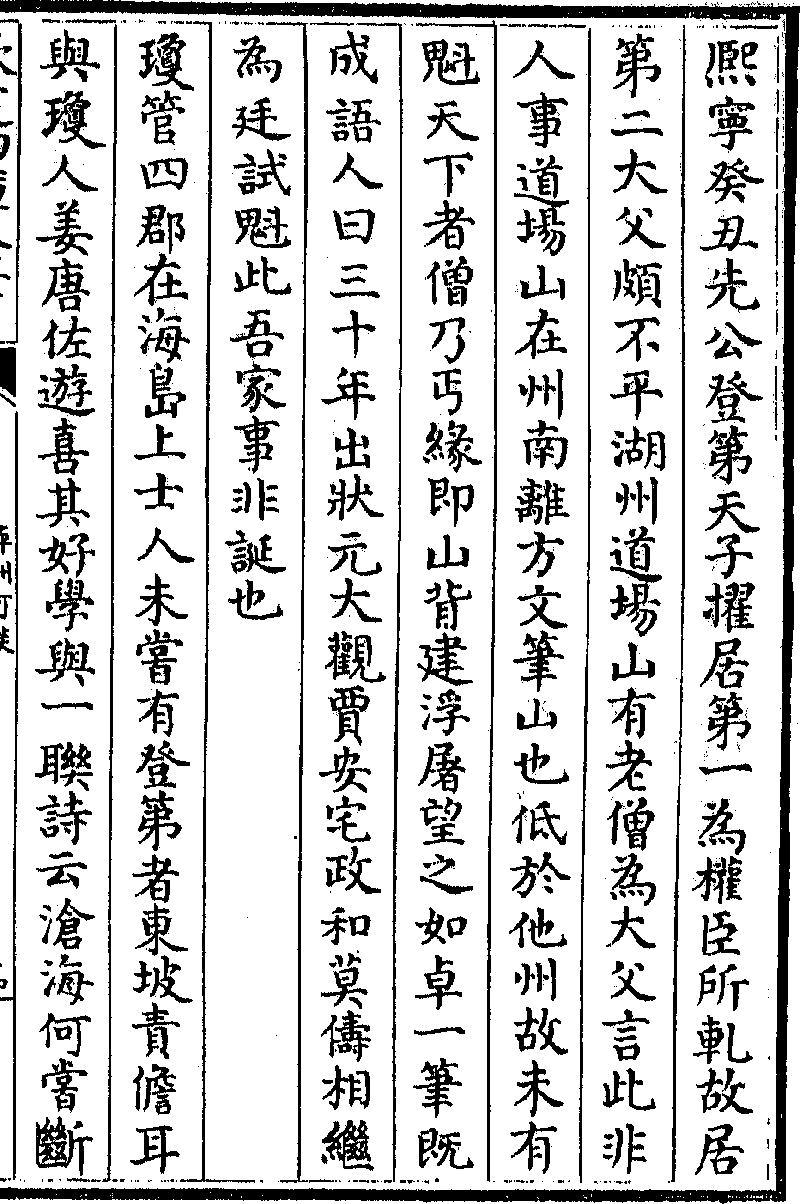 熙寧癸丑先公登第天子擢居第一為權臣所軋故居
第二大父頗不平湖州道場山有老僧為大父言此非
人事道場山在州南離方文筆山也低於他州故未有
魁天下者僧乃丐緣即山背建浮屠望之如卓一筆既
成語人曰三十年出狀元大觀賈安宅政和莫儔相繼
為廷試魁此吾家事非誕也
瓊管四郡在海島上士人未嘗有登第者東坡責儋耳
與瓊人姜唐佐遊喜其好學與一聯詩云滄海何嘗斷